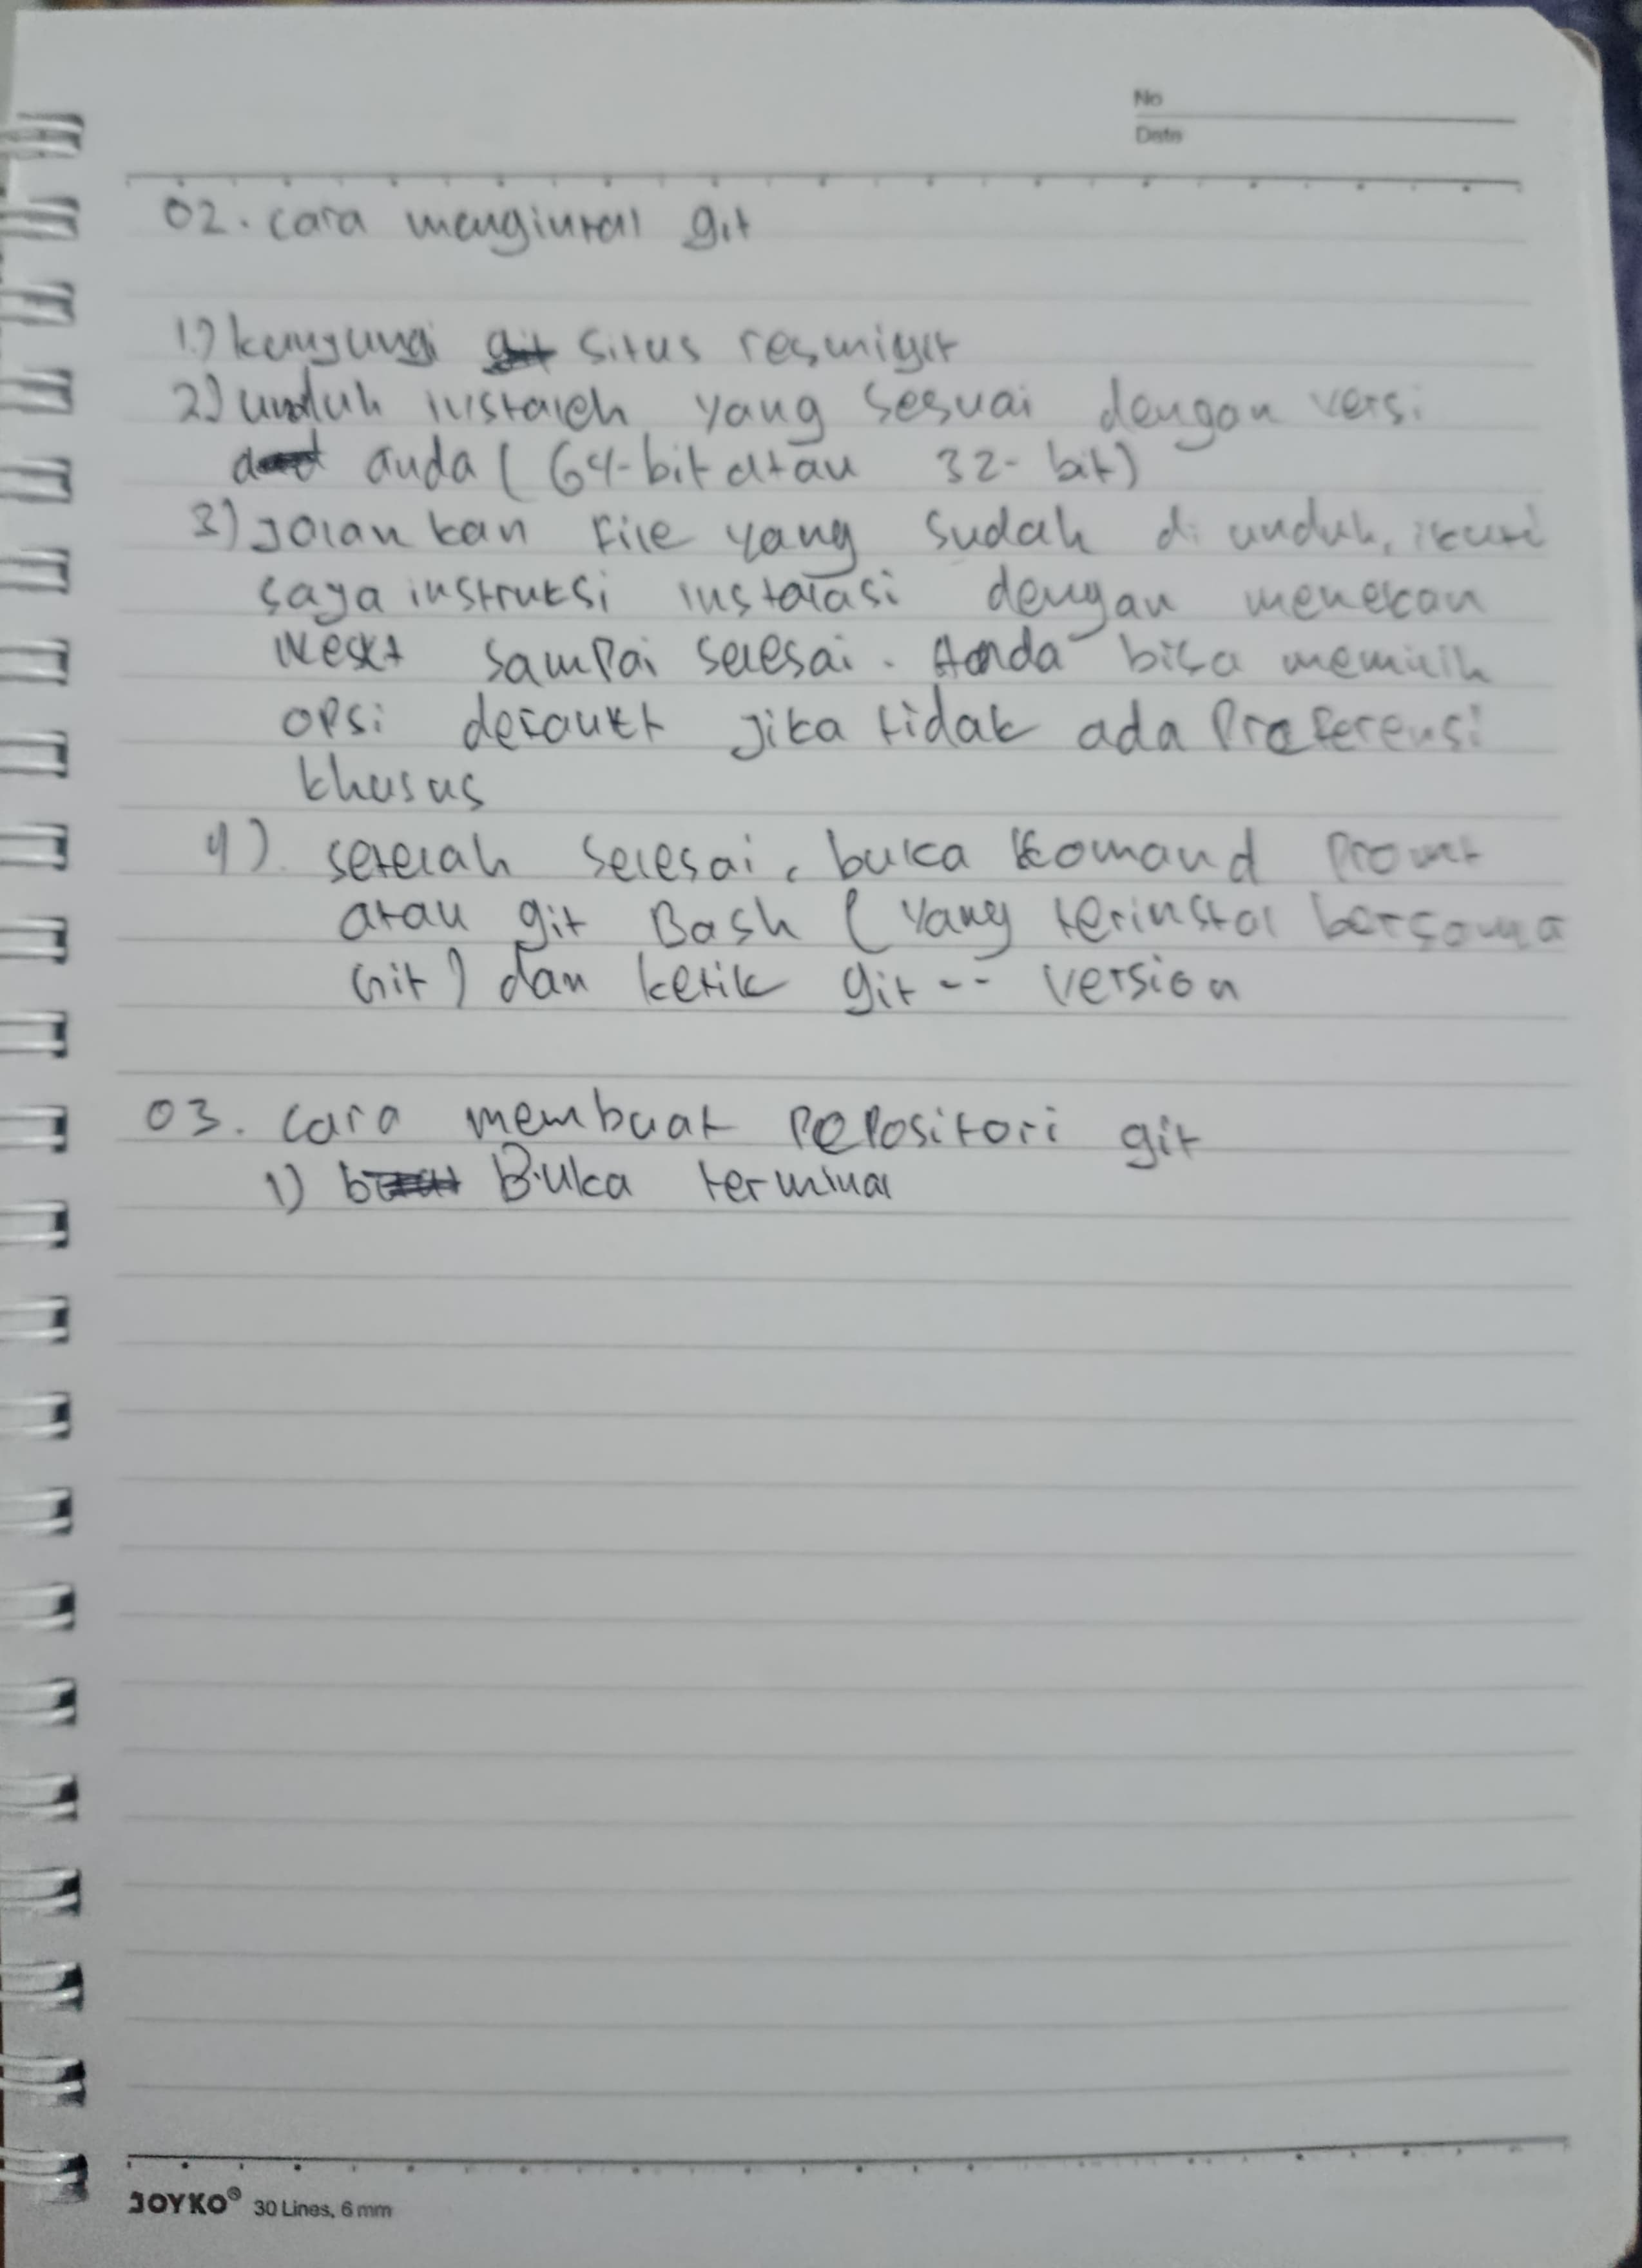 No
Date
02. cara menginstal git
1.) kunjungi situs resmi git
2) unduh instaleh yang sesuai dengan versi
anda (64-bit atau 32-bit)
3) jalankan file yang sudah di unduh, ikuti
saya instruksi instalasi dengan menekan
Next sampai selesai. Anda bisa memilih
opsi default jika tidak ada Preferensi
khusus
4). setelah selesai, buka Komand Promt
atau git Bash (yang terinstal bersama
Git) dan ketik git -- version
03. cara membuat repositori git
1) Buka terminal
JOYKO® 30 Lines, 6 mm